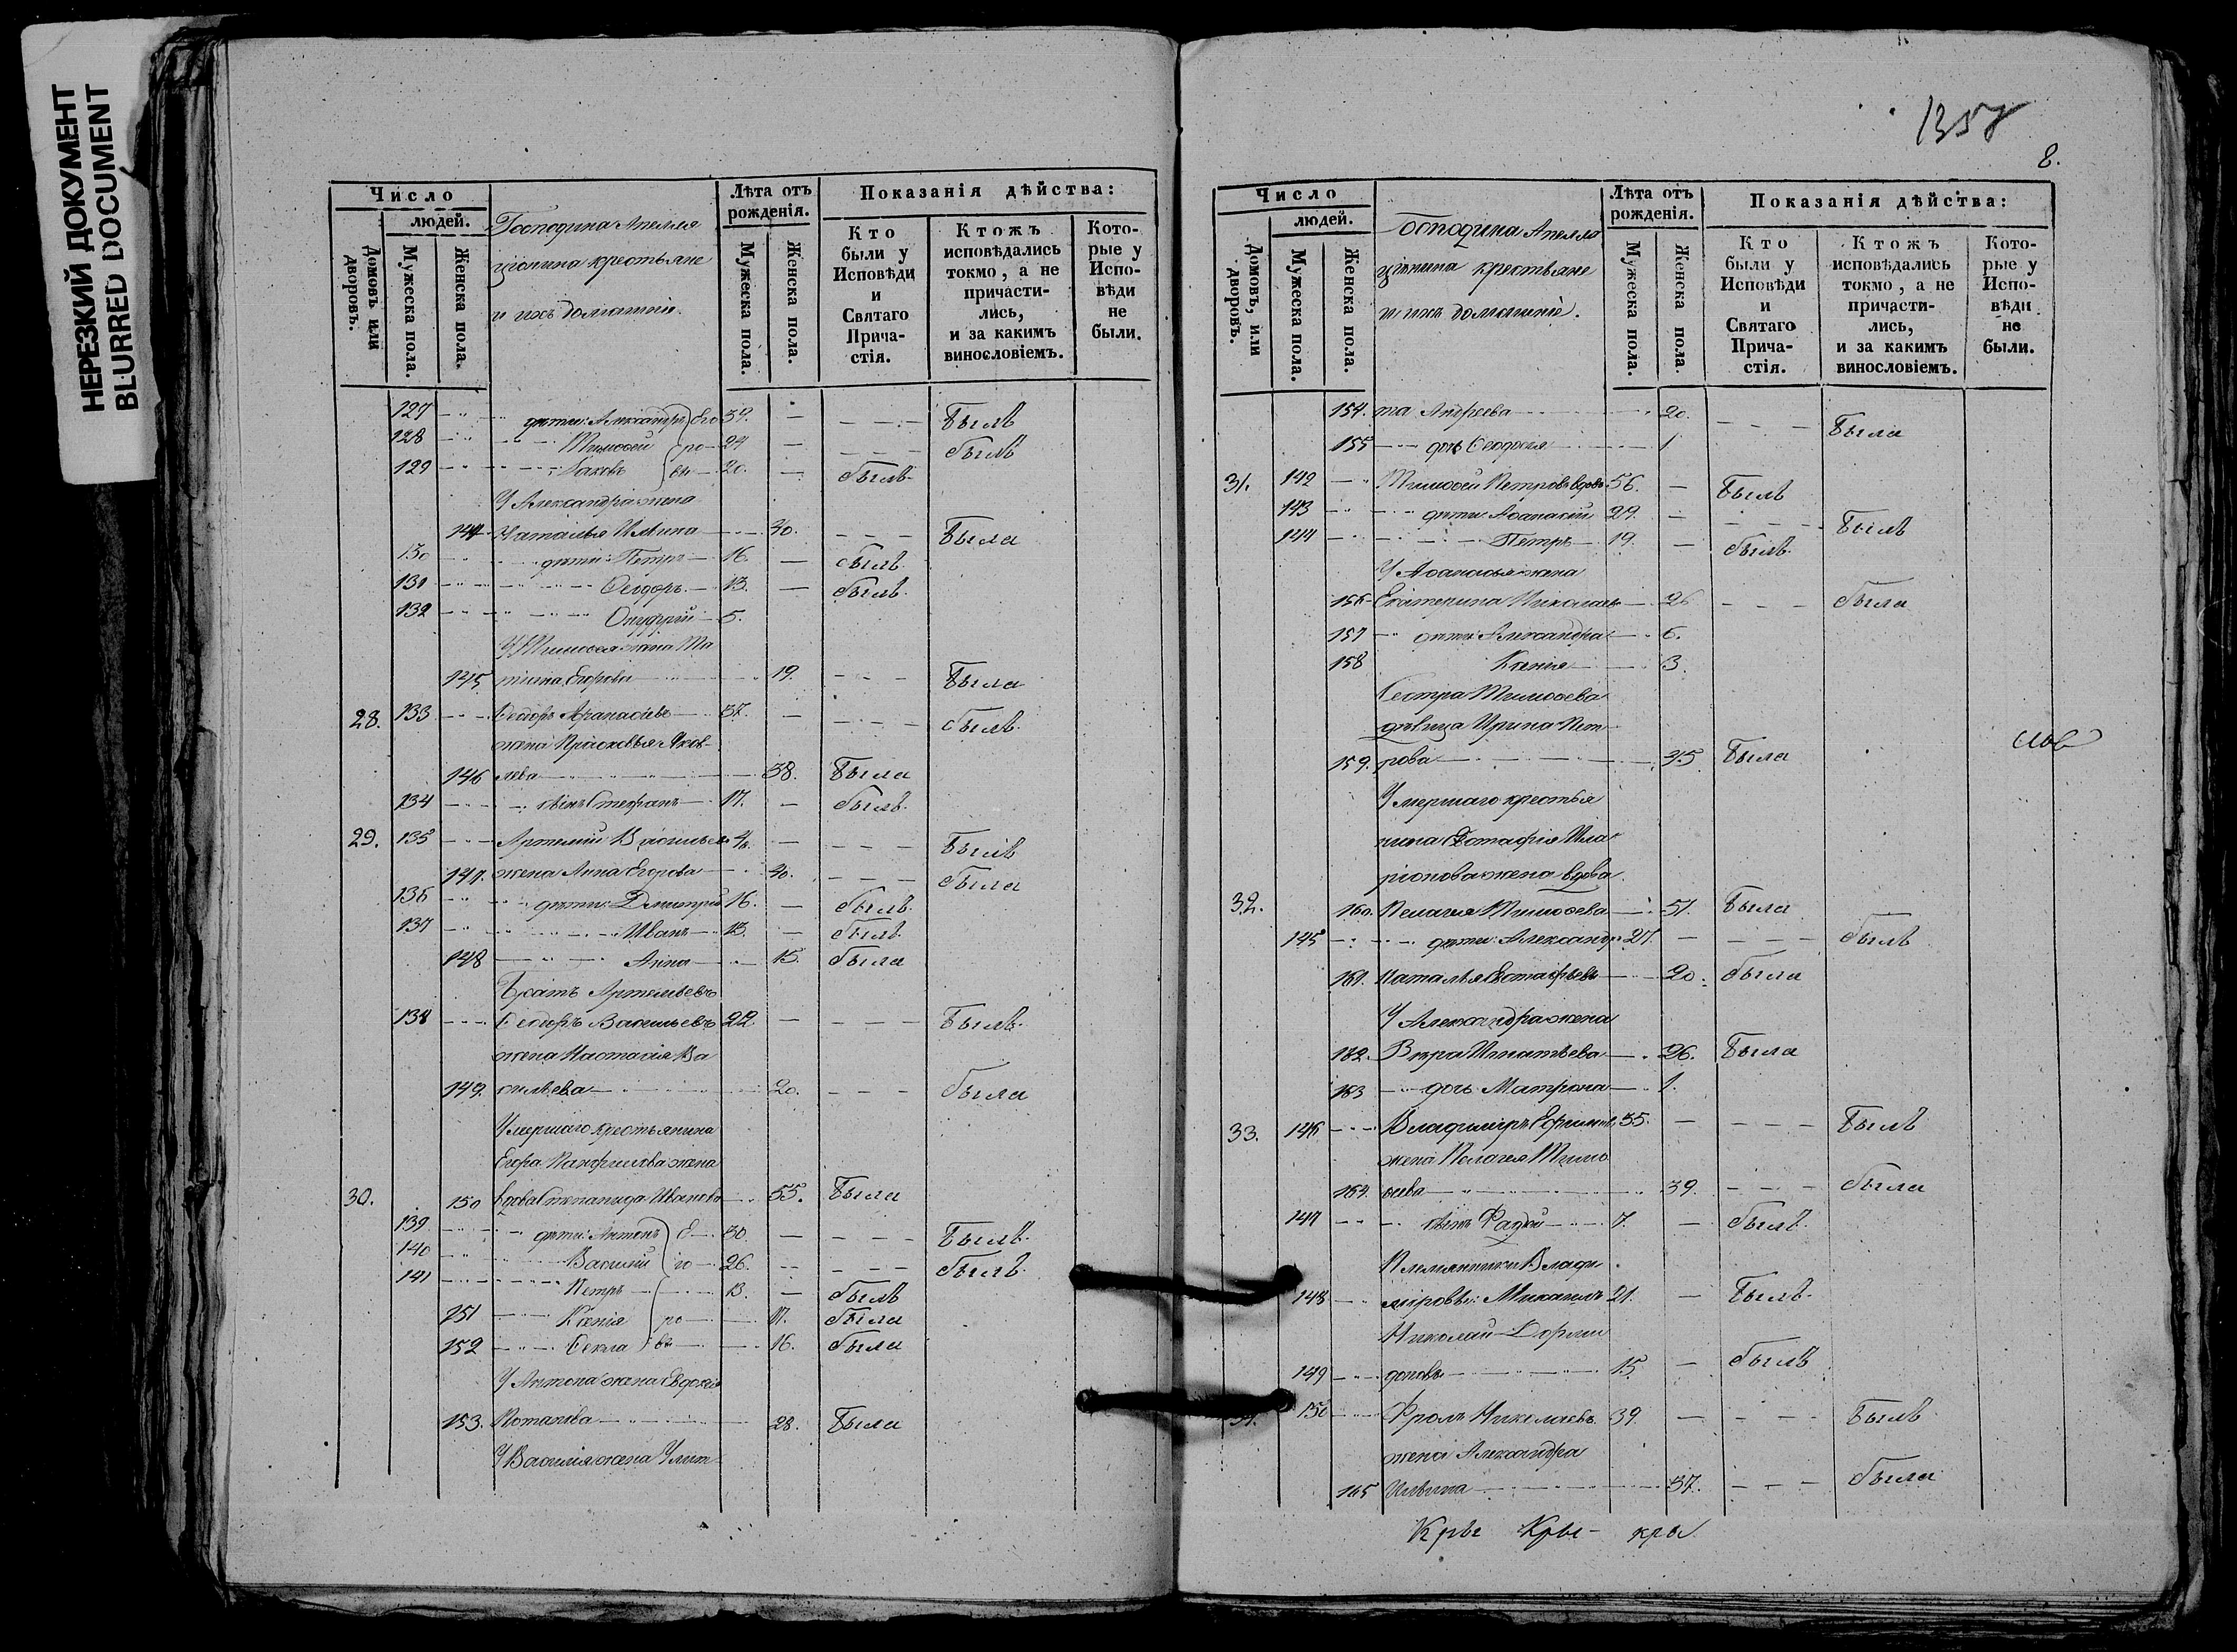 НЕРЕЗКИЙ ДОКУМЕНТ
BLURRED DOCUMENT
Число
людей.
Домовъ или дворовъ.
Мужеска пола.
Женска пола.
Господина Апелля
крестьяне
и ихъ домашнія.
Лѣта отъ рожденія.
Мужеска пола.
Женска пола.
Показанія дѣйства:
Кто были у Исповѣди и Святаго Прича-стія.
Ктожъ исповѣдались токмо, а не причасти-лись, и за какимъ винословіемъ.
Кото-рые у Испо-вѣди не были.
127 дѣти: Александръ Его былъ
128 Тимоѳей ро 24 былъ
129 Іаковъ вы 20. былъ
У Александра жена
144 Наталья 40. была
130 дѣти: Петръ 16 былъ
131 Ѳеодоръ 13. былъ
132 Онуфрій 5.
У Тимоѳея жена Та
145 тіана Егорова 19. была
28. 133 Ѳеодоръ Афанасіевъ 37. былъ
жена Прасковья Яков-
146 лева 38. была
134 сынъ Стефанъ 17. былъ
29. 135 Артемій Васильевъ былъ
147. жена Анна Егорова 40. была
136 дѣти: Дмитрій 16. былъ
137 Иванъ 13. былъ
148 Анна 15. была
Братъ Артемьевъ
138 Ѳеодоръ Васильевъ 22 былъ
жена Настасія Ва
149. сильева 20. была
Умершаго крестьянина
Егора Панфилова жена
30. 150 вдова Степанида Иванова 55. была
139 дѣти: Антонъ Е 30. былъ
140 Василій го 26. былъ
141 Петръ 13. былъ
151 Ксенія ро 17. была
152 Ѳекла вы 16. была
У Антона жена Евдокія
153. Потапова 28. была
У Василія жена Улит
1357
8.
Число
людей.
Домовъ, или дворовъ.
Мужеска пола.
Женска пола.
Господина Апелля
крестьяне
и ихъ домашніе.
Лѣта отъ рожденія.
Мужеска пола.
Женска пола.
Показанія дѣйства:
Кто были у Исповѣди и Святаго Прича-стія.
Ктожъ исповѣдались токмо, а не причасти-лись, и за какимъ винословіемъ.
Кото-рые у Испо-вѣди не были.
154. та Андреева 20. была
155 дочь 1
31. 142 Тимоѳей Петровъ вдовъ 56. былъ
143 дѣти: Аѳанасій 29. былъ
144 Петръ 19. былъ
У Аѳанасья жена
156 Екатерина Николаева 26 была
157 дѣти: Александра 6.
158 Ксенія 3.
Сестра Тимоѳеева
дѣвица Ирина Пет
159. рова 45 была
Умершаго крестья
нина Евстафія Ила
ріонова жена вдова
32. 160. Пелагея Тимоѳеева 51. была
145 дѣти: Александръ 27. былъ
161. Наталья Евстафьева 20. была
У Александра жена
162. Вѣра Игнатьева 26. была
163 дочь Матрона 1.
33. 146 Владиміръ Ефимовъ 35. былъ
жена Пелагея Тимо
164. ѳеева 39. была
147 сынъ Фадѣй 7. былъ
Племянники Влади
148 міровы: Михаилъ 21. былъ
Николай Дорми
149 доновы 15. былъ
150 Фролъ Николаевъ 39. былъ
жена Александра
165 Ильина 37. была